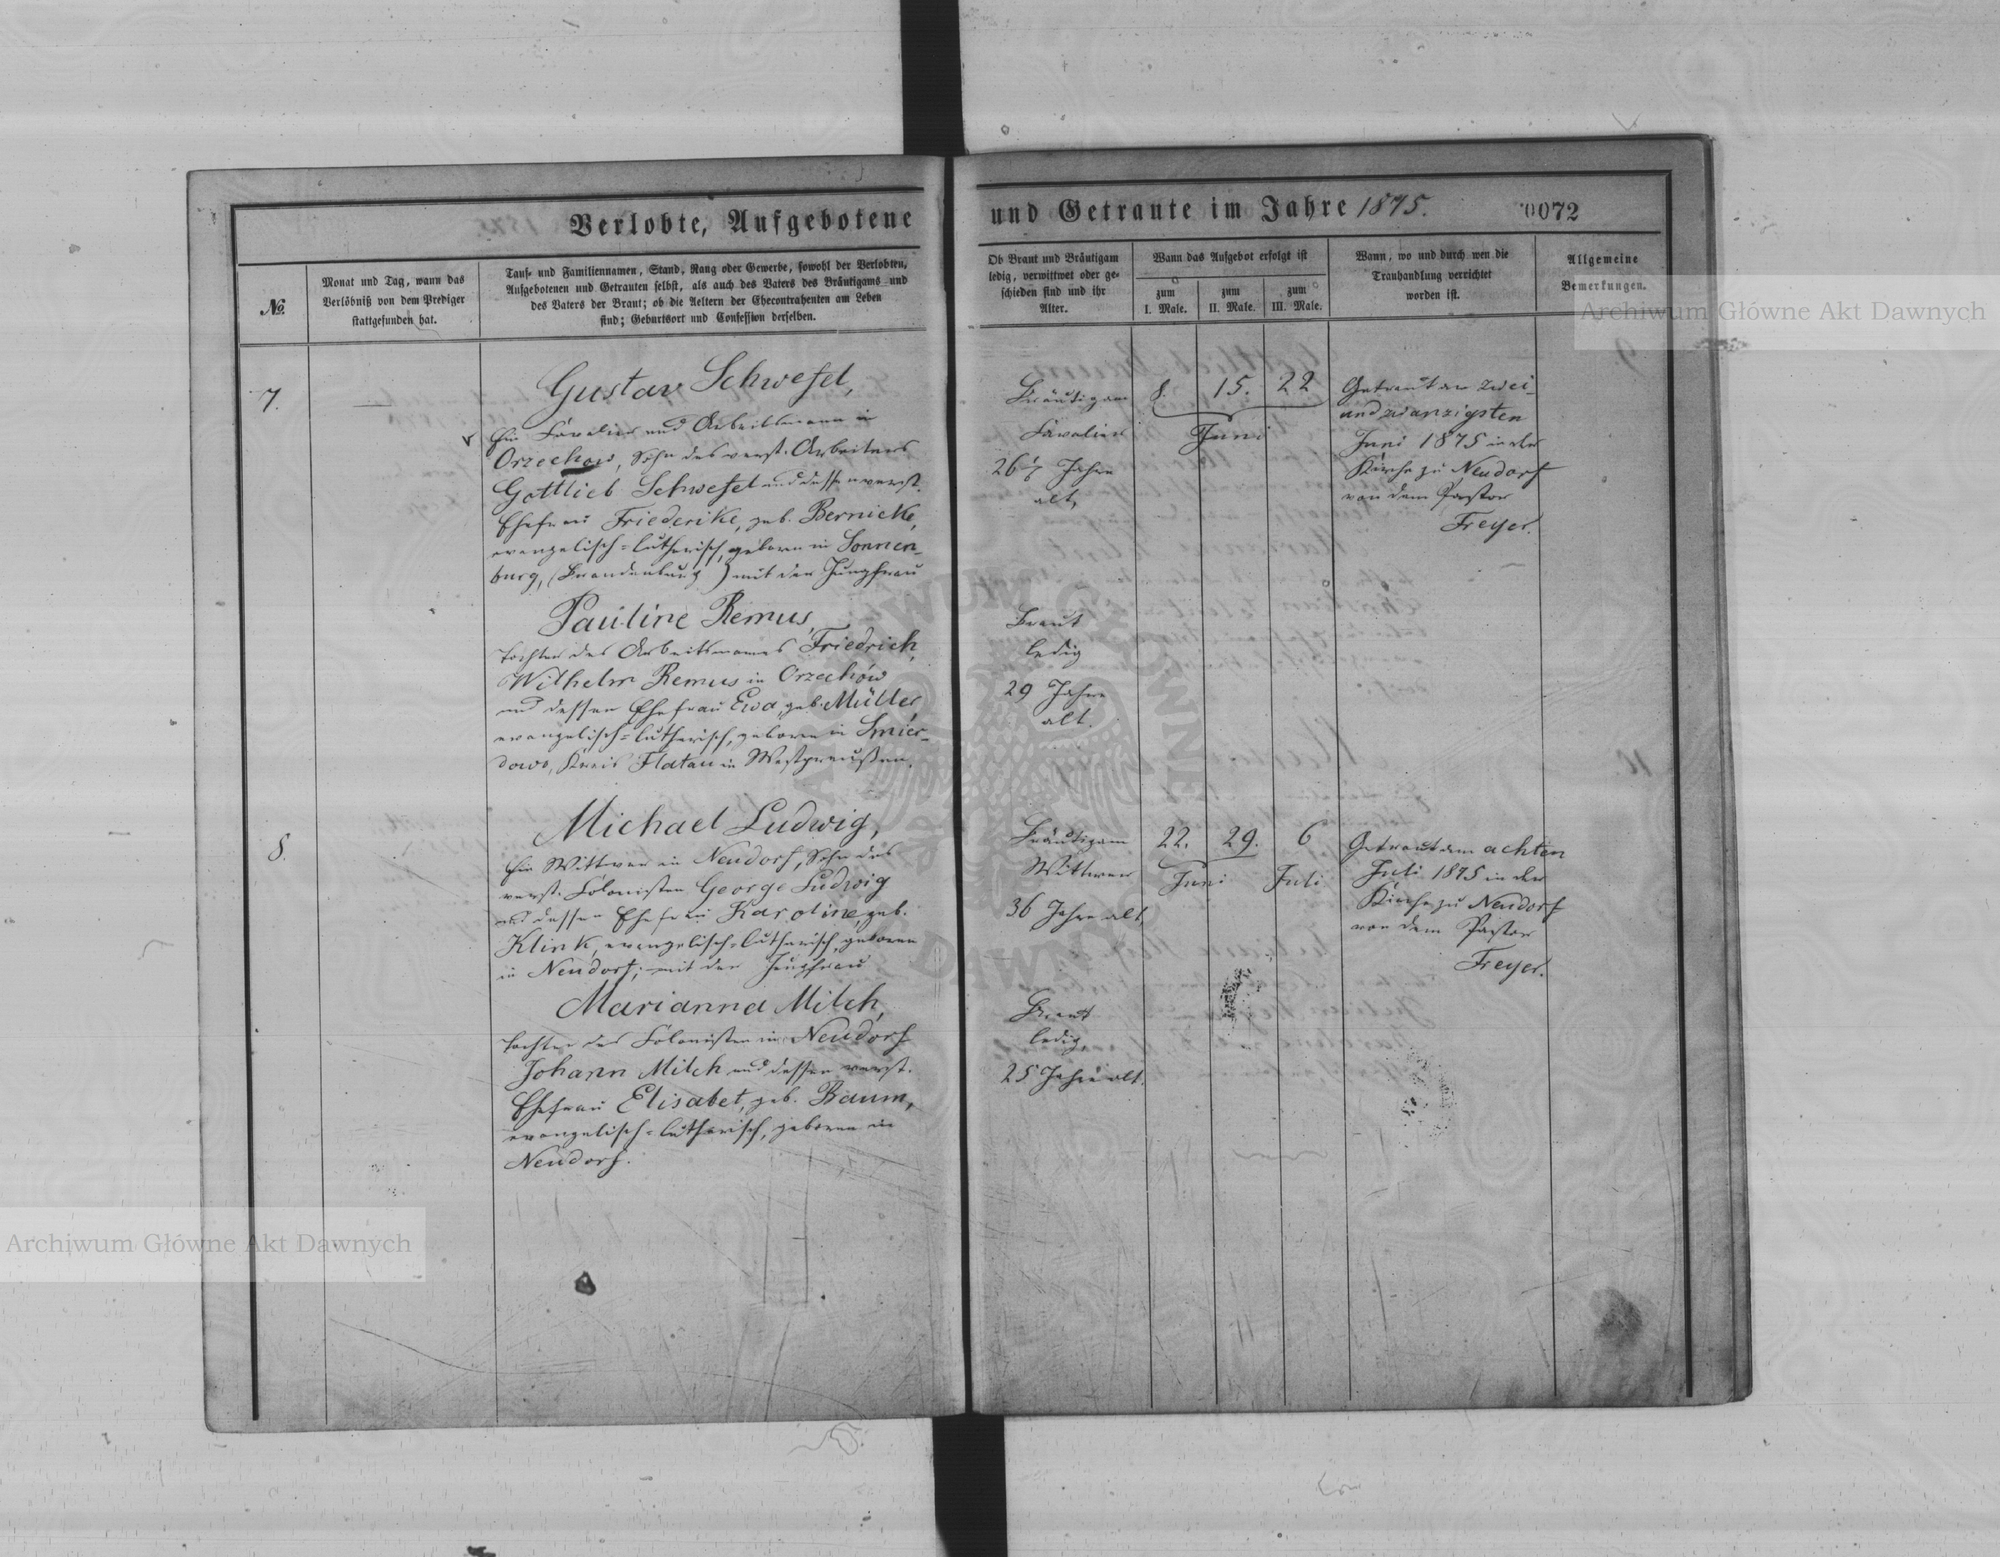 Verlobte, Aufgebotene
und Getraute im Jahre 1875.
0072
№
Monat und Tag, wann das
Verlöbniß von dem Prediger
stattgefunden hat.
Tauf- und Familiennamen, Stand, Rang oder Gewerbe, sowohl der Verlobten,
Aufgebotenen und Getrauten selbst, als auch des Vaters des Bräutigams und
des Vaters der Braut; ob die Aeltern der Ehecontrahenten am Leben
sind; Geburtsort und Confession derselben.
Ob Braut und Bräutigam
ledig, verwittwet oder ge-
schieden sind und ihr
Alter.
Wann das Aufgebot erfolgt ist
zum
I. Male.
zum
II. Male.
zum
III. Male.
Wann, wo und durch wen die
Trauhandlung verrichtet
worden ist.
Allgemeine
Bemerkungen.
7.
Gustav Schwefel,
Ein Cavalier und Arbeitsmann in
Orzechow, Sohn des verst. Arbeiters
Gottlieb Schwefel und dessen verst.
Ehefrau Friederike, geb. Bernicke,
evangelisch-lutherisch, geboren in Sonnen-
burg, (Brandenburg) mit der Jungfrau
Pauline Remus,
Tochter des Arbeitsmannes Friedrich
Wilhelm Remus in Orzechów
und dessen Ehefrau Ewa, geb. Müller,
evangelisch-lutherisch, geboren in Smier-
dowo, Kreis Flatau in Westpreußen.
Bräutigam
Cavalier
26 Jahre
alt,
Braut
ledig
29 Jahre
alt.
8. 15. 22
Juni
Getraut am zwei-
und zwanzigsten
Juni 1875 in der
Kirche zu Neudorf
von dem Pastor
Freyer.
8.
Michael Ludwig,
Ein Wittwer in Neudorf, Sohn des
verst. Colonisten George Ludwig
und dessen Ehefrau Karoline, geb.
Klink, evangelisch-lutherisch, geboren
in Neudorf; mit der Jungfrau
Marianna Milch,
Tochter des Colonisten in Neudorf
Johann Milch und dessen verst.
Ehefrau Elisabet, geb. Baum,
evangelisch-lutherisch, geboren in
Neudorf.
Bräutigam
Wittwer
36 Jahre alt,
Braut
ledig,
25 Jahre alt.
22. 29. 6
Juni Juli
Getraut am achten
Juli 1875 in der
Kirche zu Neudorf
von dem Pastor
Freyer.
Archiwum Główne Akt Dawnych
Archiwum Główne Akt Dawnych
ARCHIWUM GŁÓWNE AKT DAWNYCH